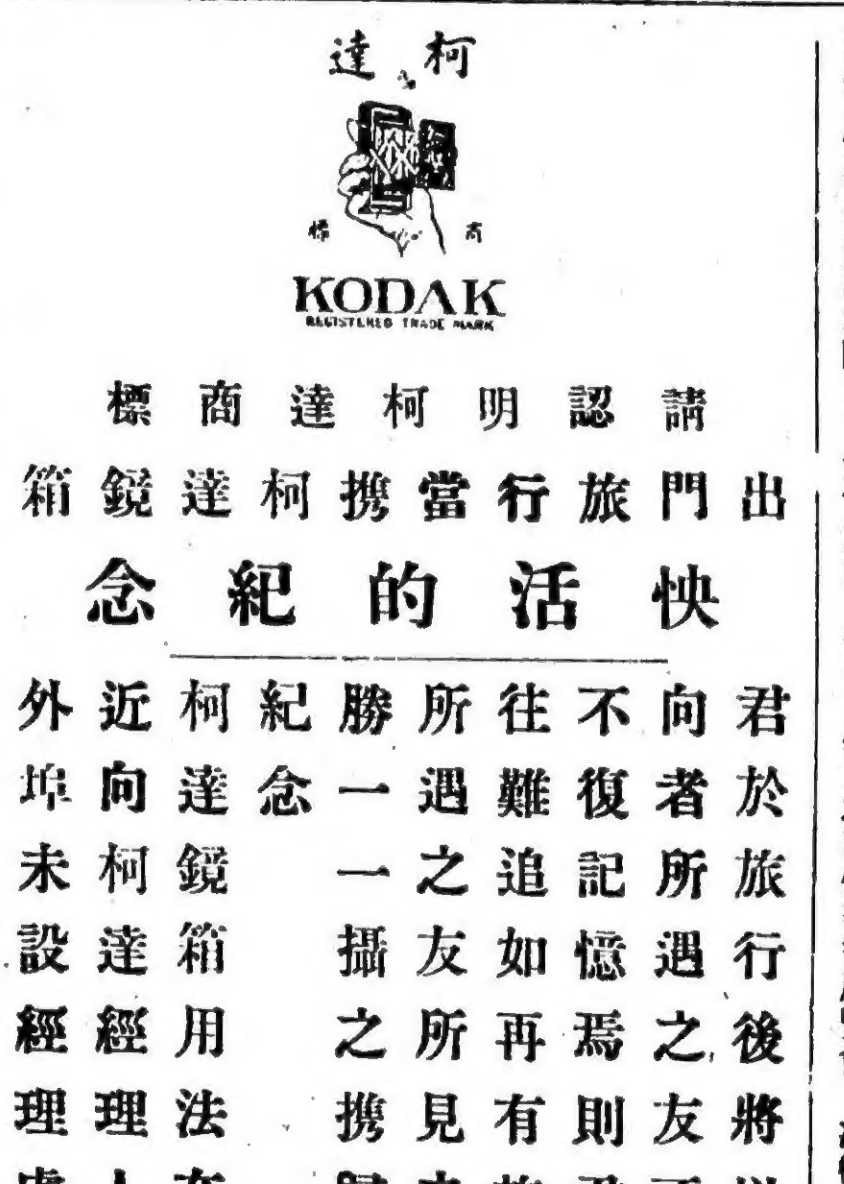 柯達
商標
KODAK
REGISTERED TRADE MARK
請認明柯達商標
出門旅行當携柯達鏡箱
快活的紀念
君於旅行後將
向者所遇之友
不復記憶焉則
往難追如再有
所遇之友所見
勝一一攝之携
紀念
柯達鏡箱用法
近向柯達經理
外埠未設經理